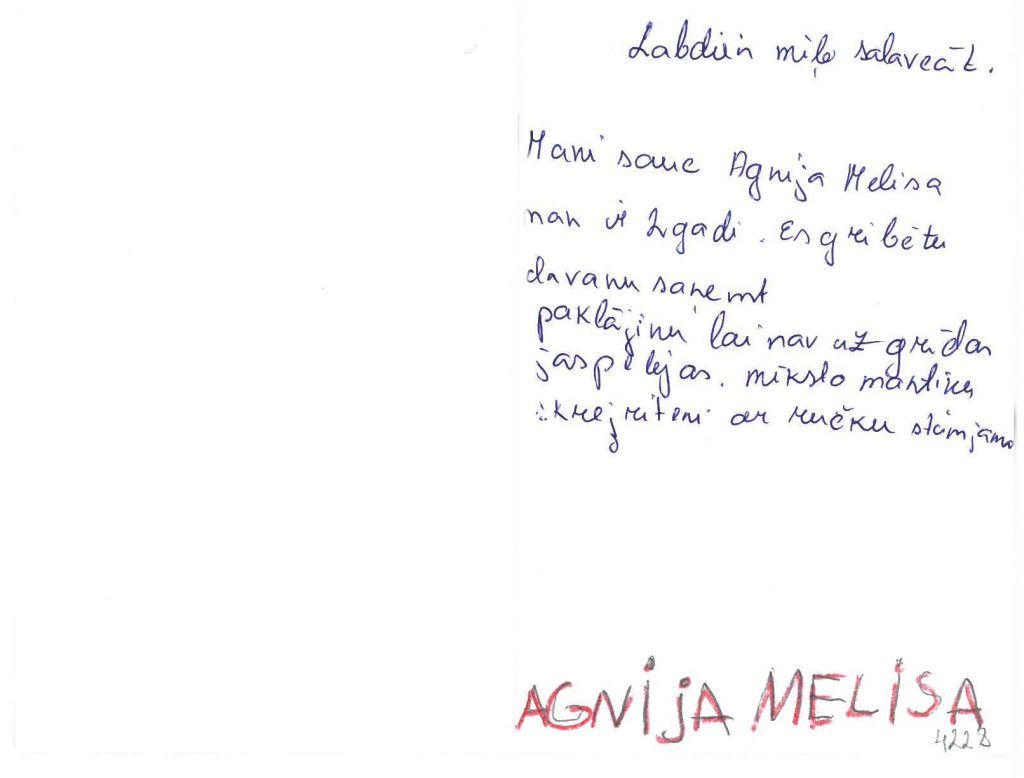 Labdien mīļo salaveāt.
Mani sauc Agnija Melisa
man ir 2gadi. Es gribētu
davanu saņemt
paklājinu lai nav uz grīdas
jaspēlējas. miksto mantiņu
skrejriteni ar ručku stūmjamo
AGNIJA MELISA
4228